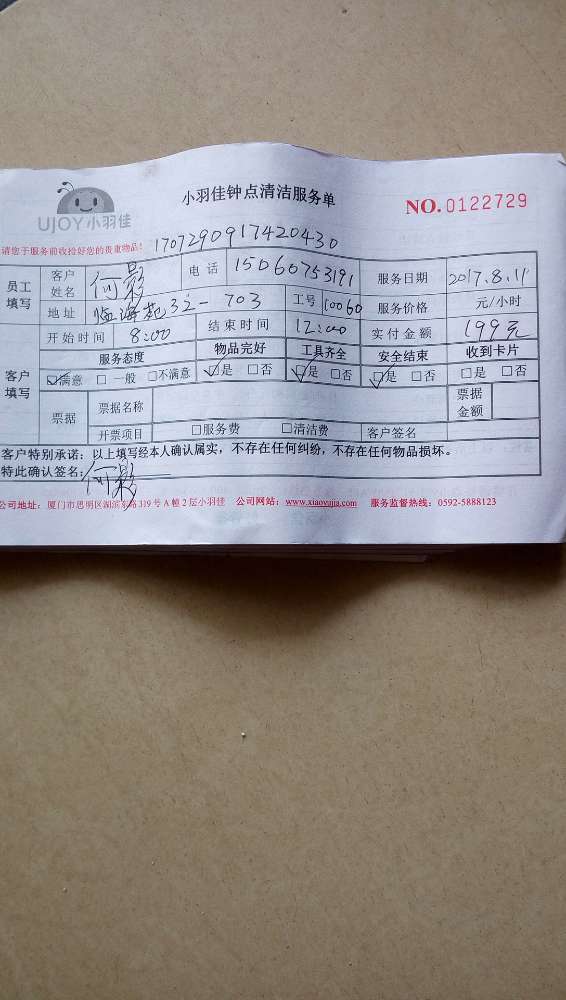 小羽佳钟点清洁服务单
NO. 0122729
UJOY小羽佳
请您于服务前收拾好您的贵重物品! 1707290917420430
员工填写 客户姓名 何影 电话 15060753191 服务日期 2017.8.11
地址 临海苑3之-703 工号 10060 服务价格 元/小时
开始时间 8:00 结束时间 12:00 实付金额 199元
客户填写 服务态度 物品完好 工具齐全 安全结束 收到卡片
☑满意 □一般 □不满意 ☑是 □否 ☑是 □否 ☑是 □否 □是 □否
票据 票据名称 票据金额
开票项目 □服务费 □清洁费 客户签名
客户特别承诺：以上填写经本人确认属实，不存在任何纠纷，不存在任何物品损坏。
特此确认签名: 何影
公司地址：厦门市思明区湖滨东路319号A幢2层小羽佳 公司网站：www.xiaoyujia.com 服务监督热线：0592-5888123